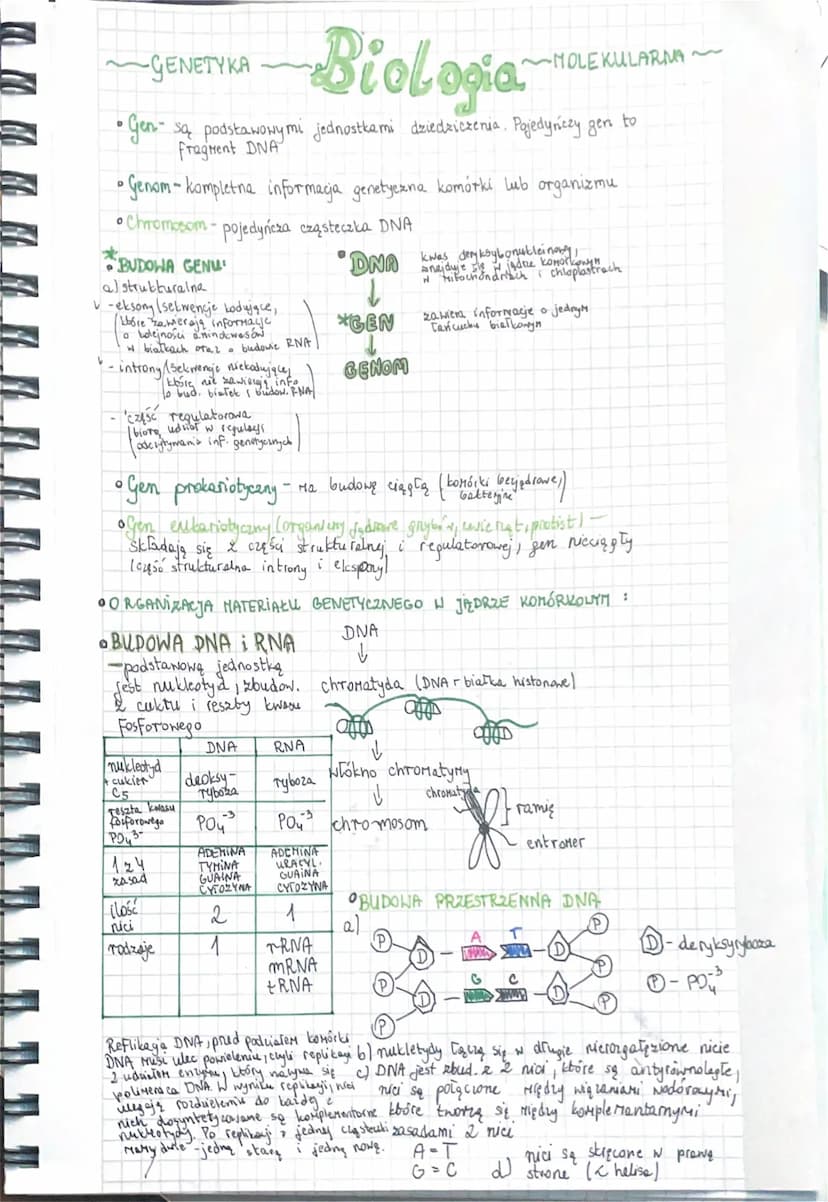 GENETYKA Biologia MOLEKULARNA
• Gen - są podstawowymi jednostkami dziedziczenia. Pojedyńczy gen to
fragment DNA
• Genom - kompletna informacja genetyczna komórki lub organizmu
• Chromosom - pojedyńcza cząsteczka DNA
* • BUDOWA GENU:
a) strukturalna
- eksony (sekwencje kodujące,
które zawierają informacje
o kolejności aminokwasów
w białkach oraz o budowie RNA)
- introny (sekwencje niekodujące,
które nie zawierają info
o bud. białek i budow. RNA)
- część regulatorowa
(biorą udział w regulacji
odczytywania inf. genetycznych)
• DNA
kwas deryksybonukleinowy,
znajduje się w jądrze komórkowym
w mitochondriach i chloplastrach
↓
*GEN
zawiera informacje o jednym
łańcuchu białkowym
↓
GENOM
• Gen prokariotyczny - ma budowę ciągłą (komórki bezjądrowe,)
bakteryjne
• Gen eukariotyczny (organizmy jądrowe grzybów, zwierząt, protist) -
składają się z części strukturalnej i regulatorowej, gen nieciągły
(część strukturalna introny i eksony)
• ORGANIZACJA MATERIAŁU GENETYCZNEGO W JĄDRZE KOMÓRKOWYM :
• BUDOWA DNA i RNA
- podstawową jednostką
jest nukleotyd, zbudow.
z cukru i reszty kwasu
fosforowego
DNA
↓
chromatyda (DNA + białka histonowe)
↓
włókno chromatyny
↓
chromosom
chromatyda
ramię
entromer
DNA RNA
nukleotyd
+ cukier
C5
deoksy-
ryboza
ryboza
reszta kwasu
fosforowego
PO₄³⁻
PO₄⁻³ PO₄⁻³
1 z 4
zasad
ADENINA
TYMINA
GUAINA
CYTOZYNA
ADENINA
URACYL.
GUAINA
CYTOZYNA
ilość
nici
2 1
rodzaje
1
rRNA
mRNA
tRNA
• BUDOWA PRZESTRZENNA DNA
a)
P D A T D P
P P
P D G C D P
P
D - deryksyryboza
P - PO₄⁻³
Reflikacja DNA, przed podziałem komórki
DNA musi ulec powieleniu, czyli replikacji
z udziałem enzymu, który nazywa się
polimeraza DNA. W wyniku replikacji, nici
ulegają rozdzieleniu do każdej z
nich dosyntetyzowane są komplementarne
nukleotydy. Po replikacji z jednej cząsteczki
mamy dwie - jedną starą i jedną nową.
b) nukletydy łączą się w długie nierozgałęzione nicie
c) DNA jest zbud. z 2 nici, które są antyrównoległe,
nici są połączone między wiązaniami wodórowymi,
które tworzą się między komplementarnymi
zasadami 2 nici
A = T
G = C
d) nici są skręcone w prawą
stronę (helisa)